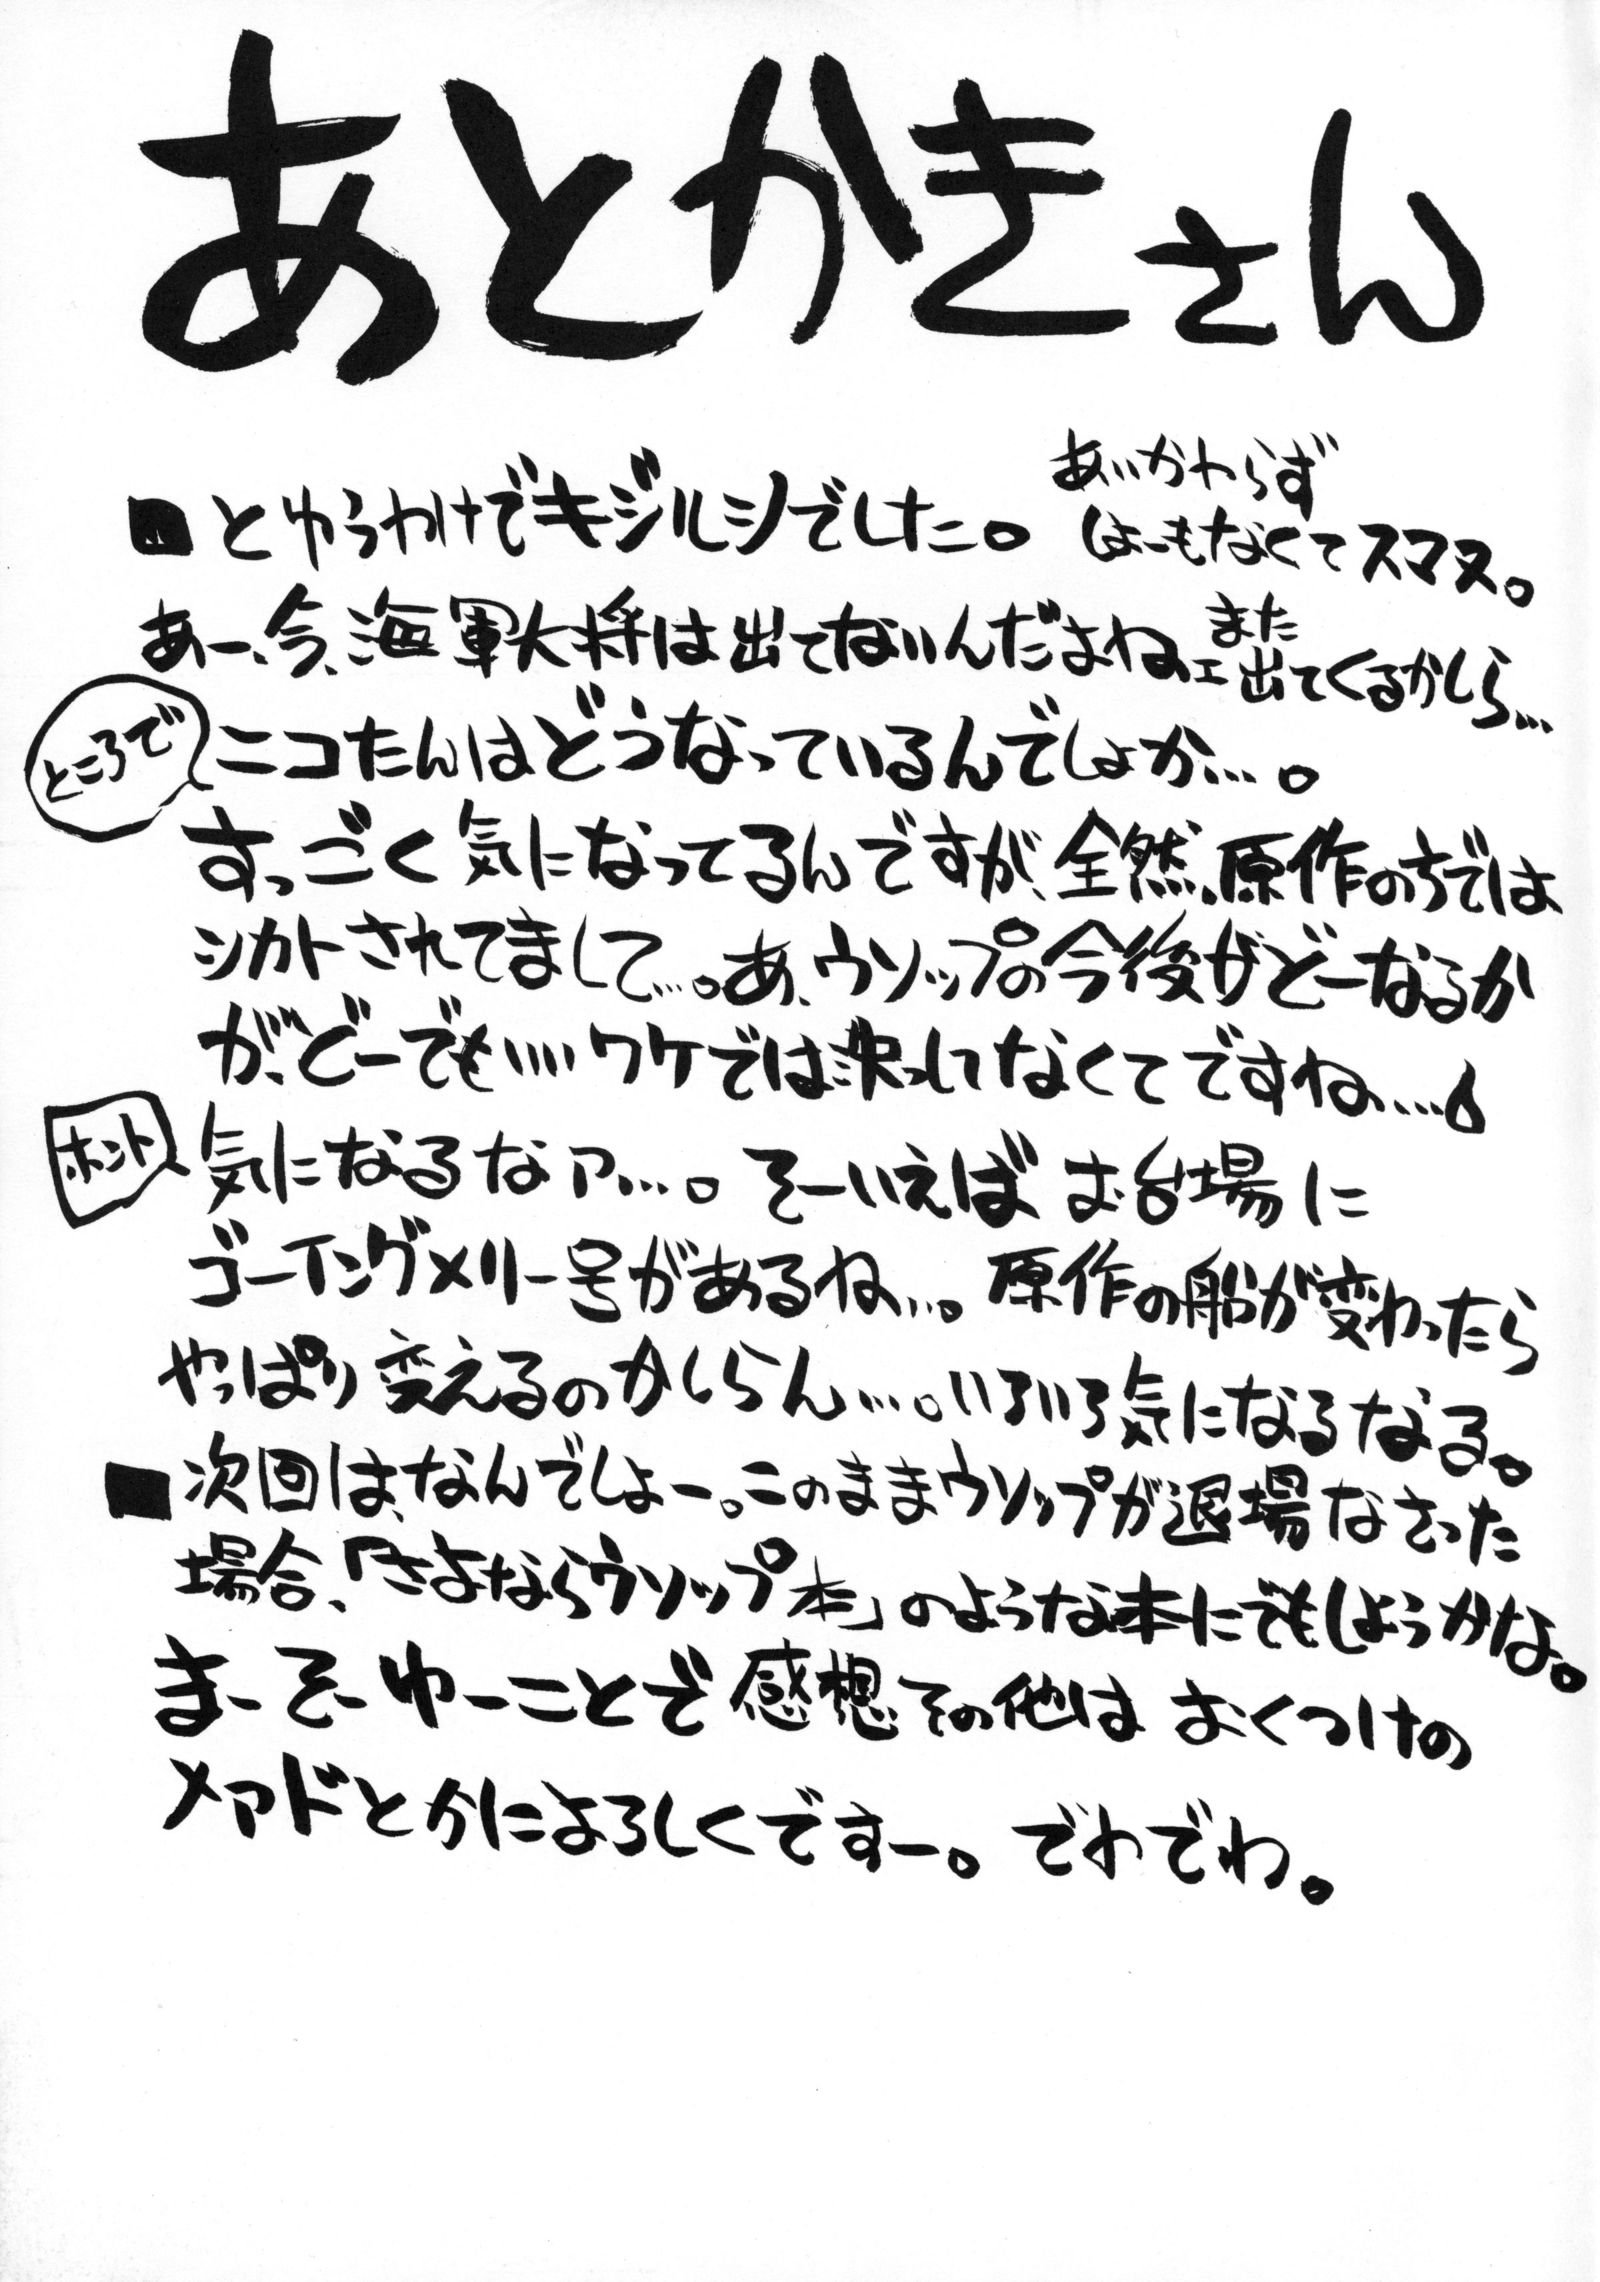 あとかきさん
■とゆうわけでキジルシでした。あいかわらず
しょーもなくてスマヌ。
あー、今、海軍大将は出てないんだよねェ また出てくるかしら…
ところで
ニコたんはどうなっているんでしょか…。
すっごく気になってるんですが、全然、原作のちでは
シカトされてまして…。あ、ウソップの今後がどーなるか
が、どーでも…ワケでは決してなくてですね…。
ホント
気になるなァ…。そーいえばお台場に
ゴーイングメリー号があるね…。原作の船が変わったら
やっぱり変えるのかしらん…。いろいろ気になるなる。
■次回は、なんでしょー。このままウソップが退場なさった
場合、「さよならウソップ本」のような本にでもしようかな。
まーそーゆーことで感想その他は おくつけの
メアドとかによろしくですー。でわでわ。